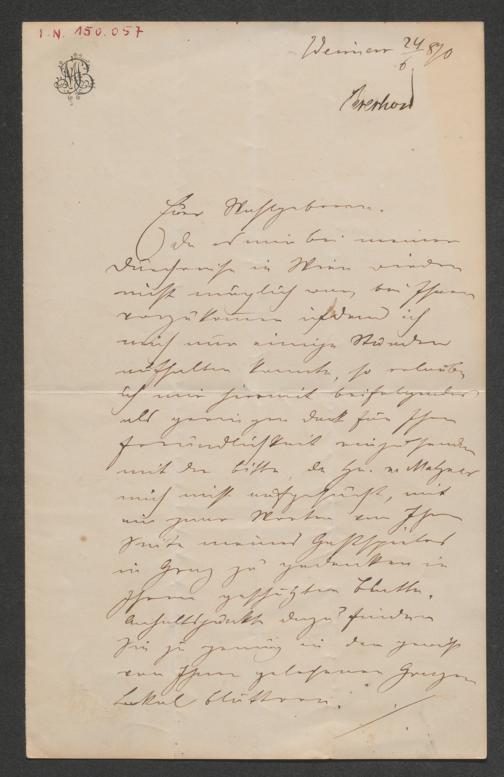 I.N. 150.057
Weimar 24/6 870
Euer Wohlgeboren.
Da es mir bei meiner
Durchreise in Wien wieder
nicht möglich war, bei Ihnen
vorzukommen indem ich
mich nur einige Stunden
aufhalten konnte, so erlaube
ich mir hiermit beifolgendes
als geringen Dank für Ihre
Freundlichkeit einzusenden
mit der Bitte, da Hr. v.
mich nicht aufgesucht, mit
ein paar Worten von Ihrer
Seite meines Gastspieles
in Graz zu gedenken in
Ihrem geschätzten Blatte.
Anhaltspunkte dazu finden
Sie ja genug in den gewiß
von Ihnen gelesenen Grazer
Lokal blättern.